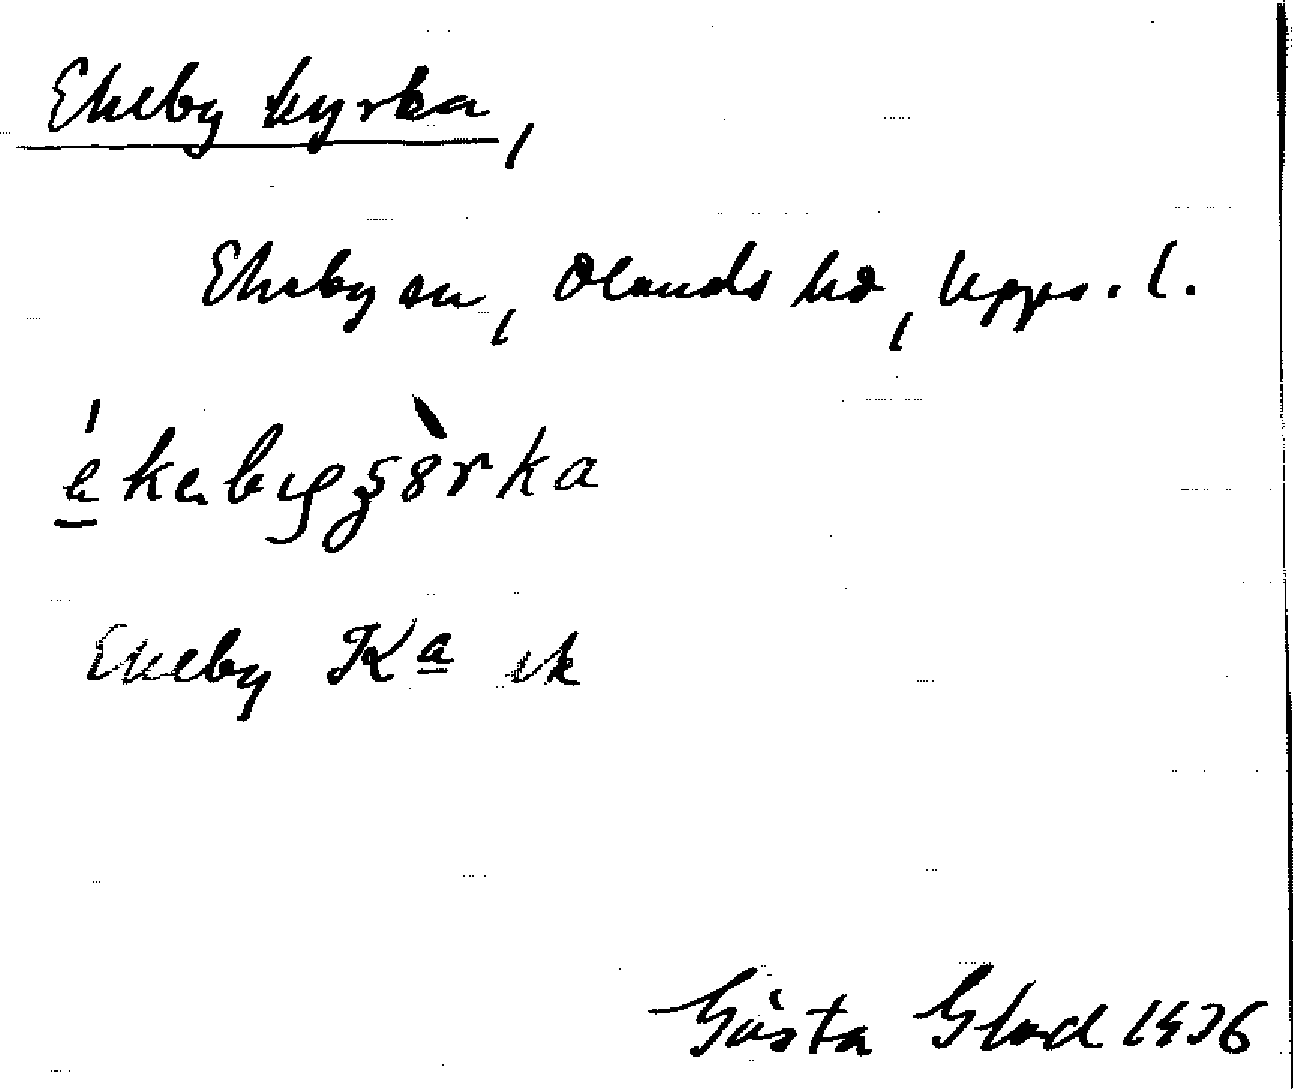 Ekeby kyrka,
Ekeby sn, Olands hd, Upps. l.
Ekeby Ka ek
Gösta Glad 1936